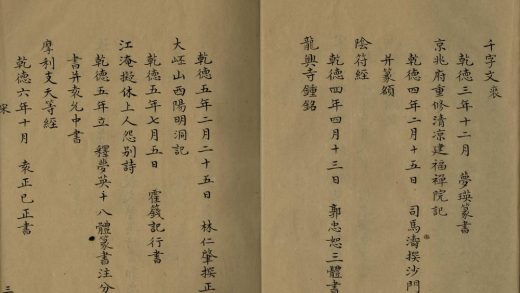 千字文 袁
乾德三年十二月 夢瑛篆書
京兆府重修清凉建福禪院記
乾德四年二月十五日 司馬濤撰沙門
并篆額
陰符經
乾德四年四月十三日 郭忠恕三體書
龍興寺鍾銘
乾德五年二月二十五日 林仁肇撰正
大岯山西陽明洞記
乾德五年七月五日 霍篯記行書
江淹擬休上人怨别詩
乾德五年立 釋夢英十八體篆書注分
書并袁允中書
摩利支天等經
乾德六年十月 袁正己正書
宋
三